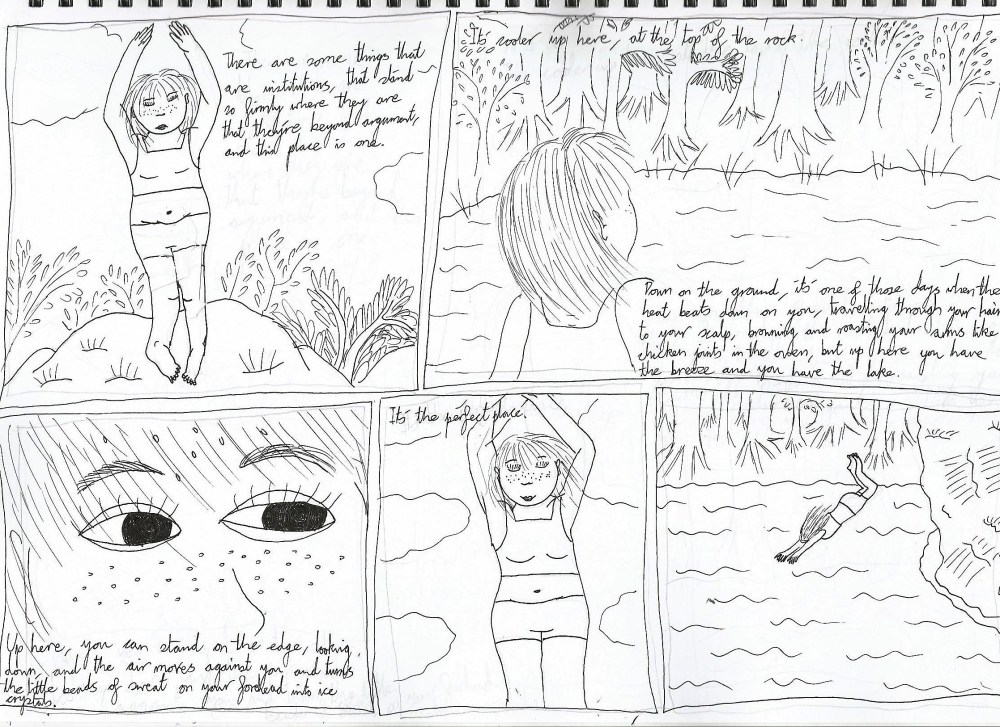 There are some things that
are institutions, that stand
so firmly where they are
that they're beyond argument,
and this place is one.
It's cooler up here, at the top of the rock.
Down on the ground, it's one of those days when the
heat beats down on you, travelling through your hair
to your scalp, browning and roasting your arms like
chicken joints in the oven, but up here you have
the breeze and you have the lake.
Up here, you can stand on the edge, looking
down, and the air moves against you and turns
the little beads of sweat on your forehead into ice
crystals.
It's the perfect place.